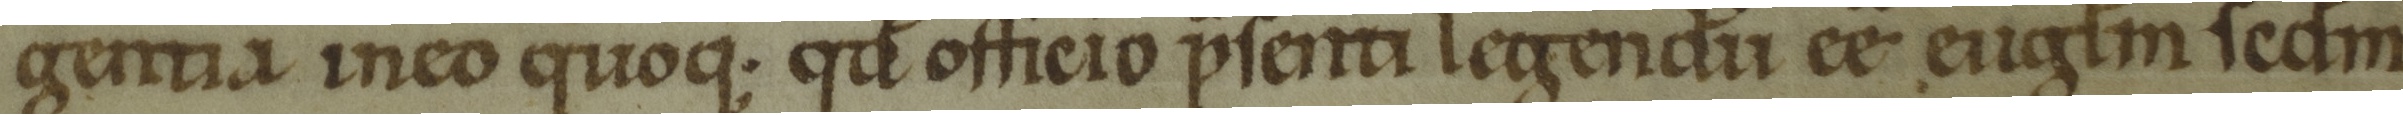 gentia ineo quoq; qd officio psenti legendu ee euglm scdm